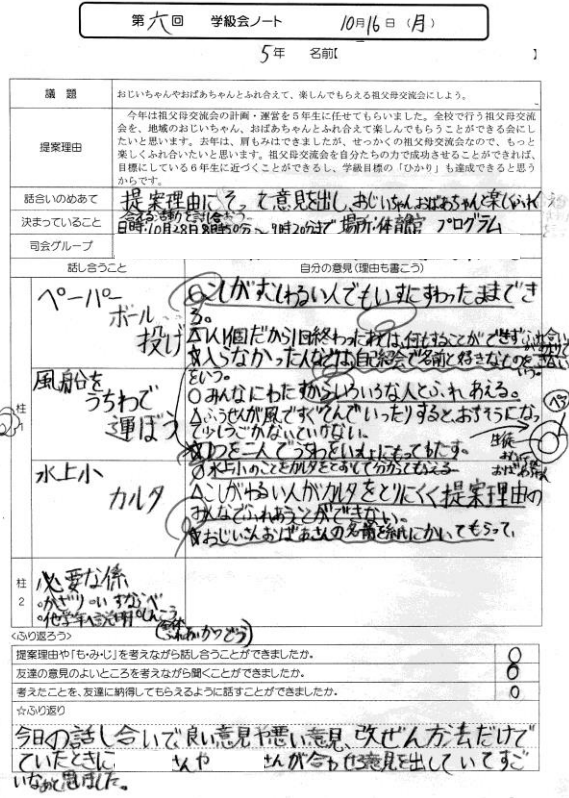 第六回 学級会ノート 10月16日(月)
5年 名前【 】
議題 おじいちゃんやおばあちゃんとふれ合えて、楽しんでもらえる祖父母交流会にしよう。
提案理由
今年は祖父母交流会の計画・運営を5年生に任せてもらいました。全校で行う祖父母交流
会を、地域のおじいちゃん、おばあちゃんとふれ合えて楽しんでもらうことができる会にし
たいと思います。去年は、肩もみはできましたが、せっかくの祖父母交流会なので、もっと
楽しくふれ合いたいと思います。祖父母交流会を自分たちの力で成功させることができれば、
目標にしている6年生に近づくことができるし、学級目標の「ひかり」も達成できると思う
からです。
話合いのめあて 提案理由にそって意見を出し、おじいちゃんおばあちゃんと楽しくふれ
合える活動を討合おう。
決まっていること 日時:10月28日8時50分〜9時20分まで 場所:体育館 プログラム
司会グループ
話し合うこと 自分の意見(理由も書こう)
柱1
ペーパー
ボール
投げ
○こしがわるい人でもいすにすわったままでき
る。
△1人1個だから1回終わったあとは、何もすることができず
☆入らなかった人などは自己紹介で名前と好きなものを
という。
風船を
うちわで
運ぼう
○みんなにわたすからいろいろな人とふれあえる。
△ふうせんが風ですぐとんでいったりすると、おちそうになっ
て少しうごかないといけない。
☆1つを二人でうちわをいっしょにもってもたす。
ペア
生徒
おじいさん
おばあさん
水上小
カルタ
○水上小のことをカルタをとおして分かってもらえる
△こしがわるい人がカルタをとりにくく提案理由の
みんなでふれあうことができない。
☆おじいさんおばあさんの名前を紙にかいてもらって、
柱2
必要な係
○かざり○いすならべ
○他学年へ説明○しんこう
(全体ふれあいかつどう)
<ふり返ろう>
提案理由や「も・み・じ」を考えながら話し合うことができましたか。 ○
友達の意見のよいところを考えながら聞くことができましたか。 ○
考えたことを、友達に納得してもらえるように話すことができましたか。 ○
☆ふり返り
今日の話し合いで良い意見や悪い意見、改ぜん方法だけで
ていたときに さんや さんが合わせる意見を出していてすご
いなあと思いました。